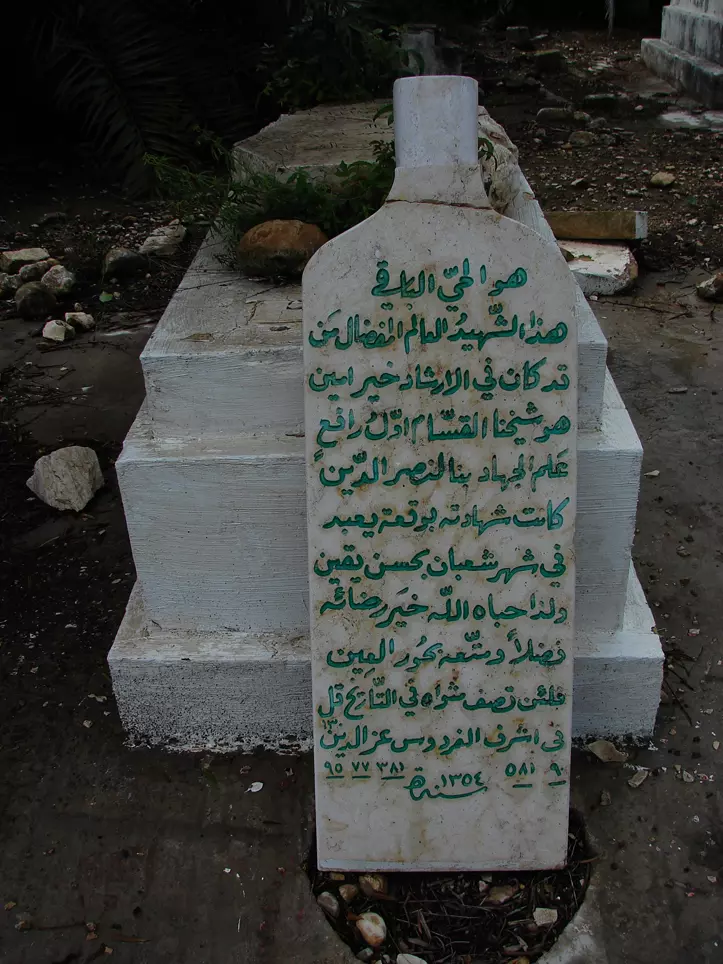 هو الحيّ الباقي
هذا الشّهيدُ العالم المفضال مَن
قد كان في الارشاد خير امين
هو شيخنا القسّام اوّلُ رافعٍ
عَلم الجهاد بنا لنصر الدّينِ
كانت شهادته بوقعة يعبد
في شهر شعبان بحسن يقين
ولذا حباه اللّه خيَر رضائه
فضلاً ومتّعه بحُور العِين
فلئن تصف مثواه في التّاريخ قلِ
١٣٠
في اشرف الفردوس عز الدين
٩٠ ٥٨١ ٣٨١ ٧٧ ٩٥
سنة ١٣٥٤ هـ